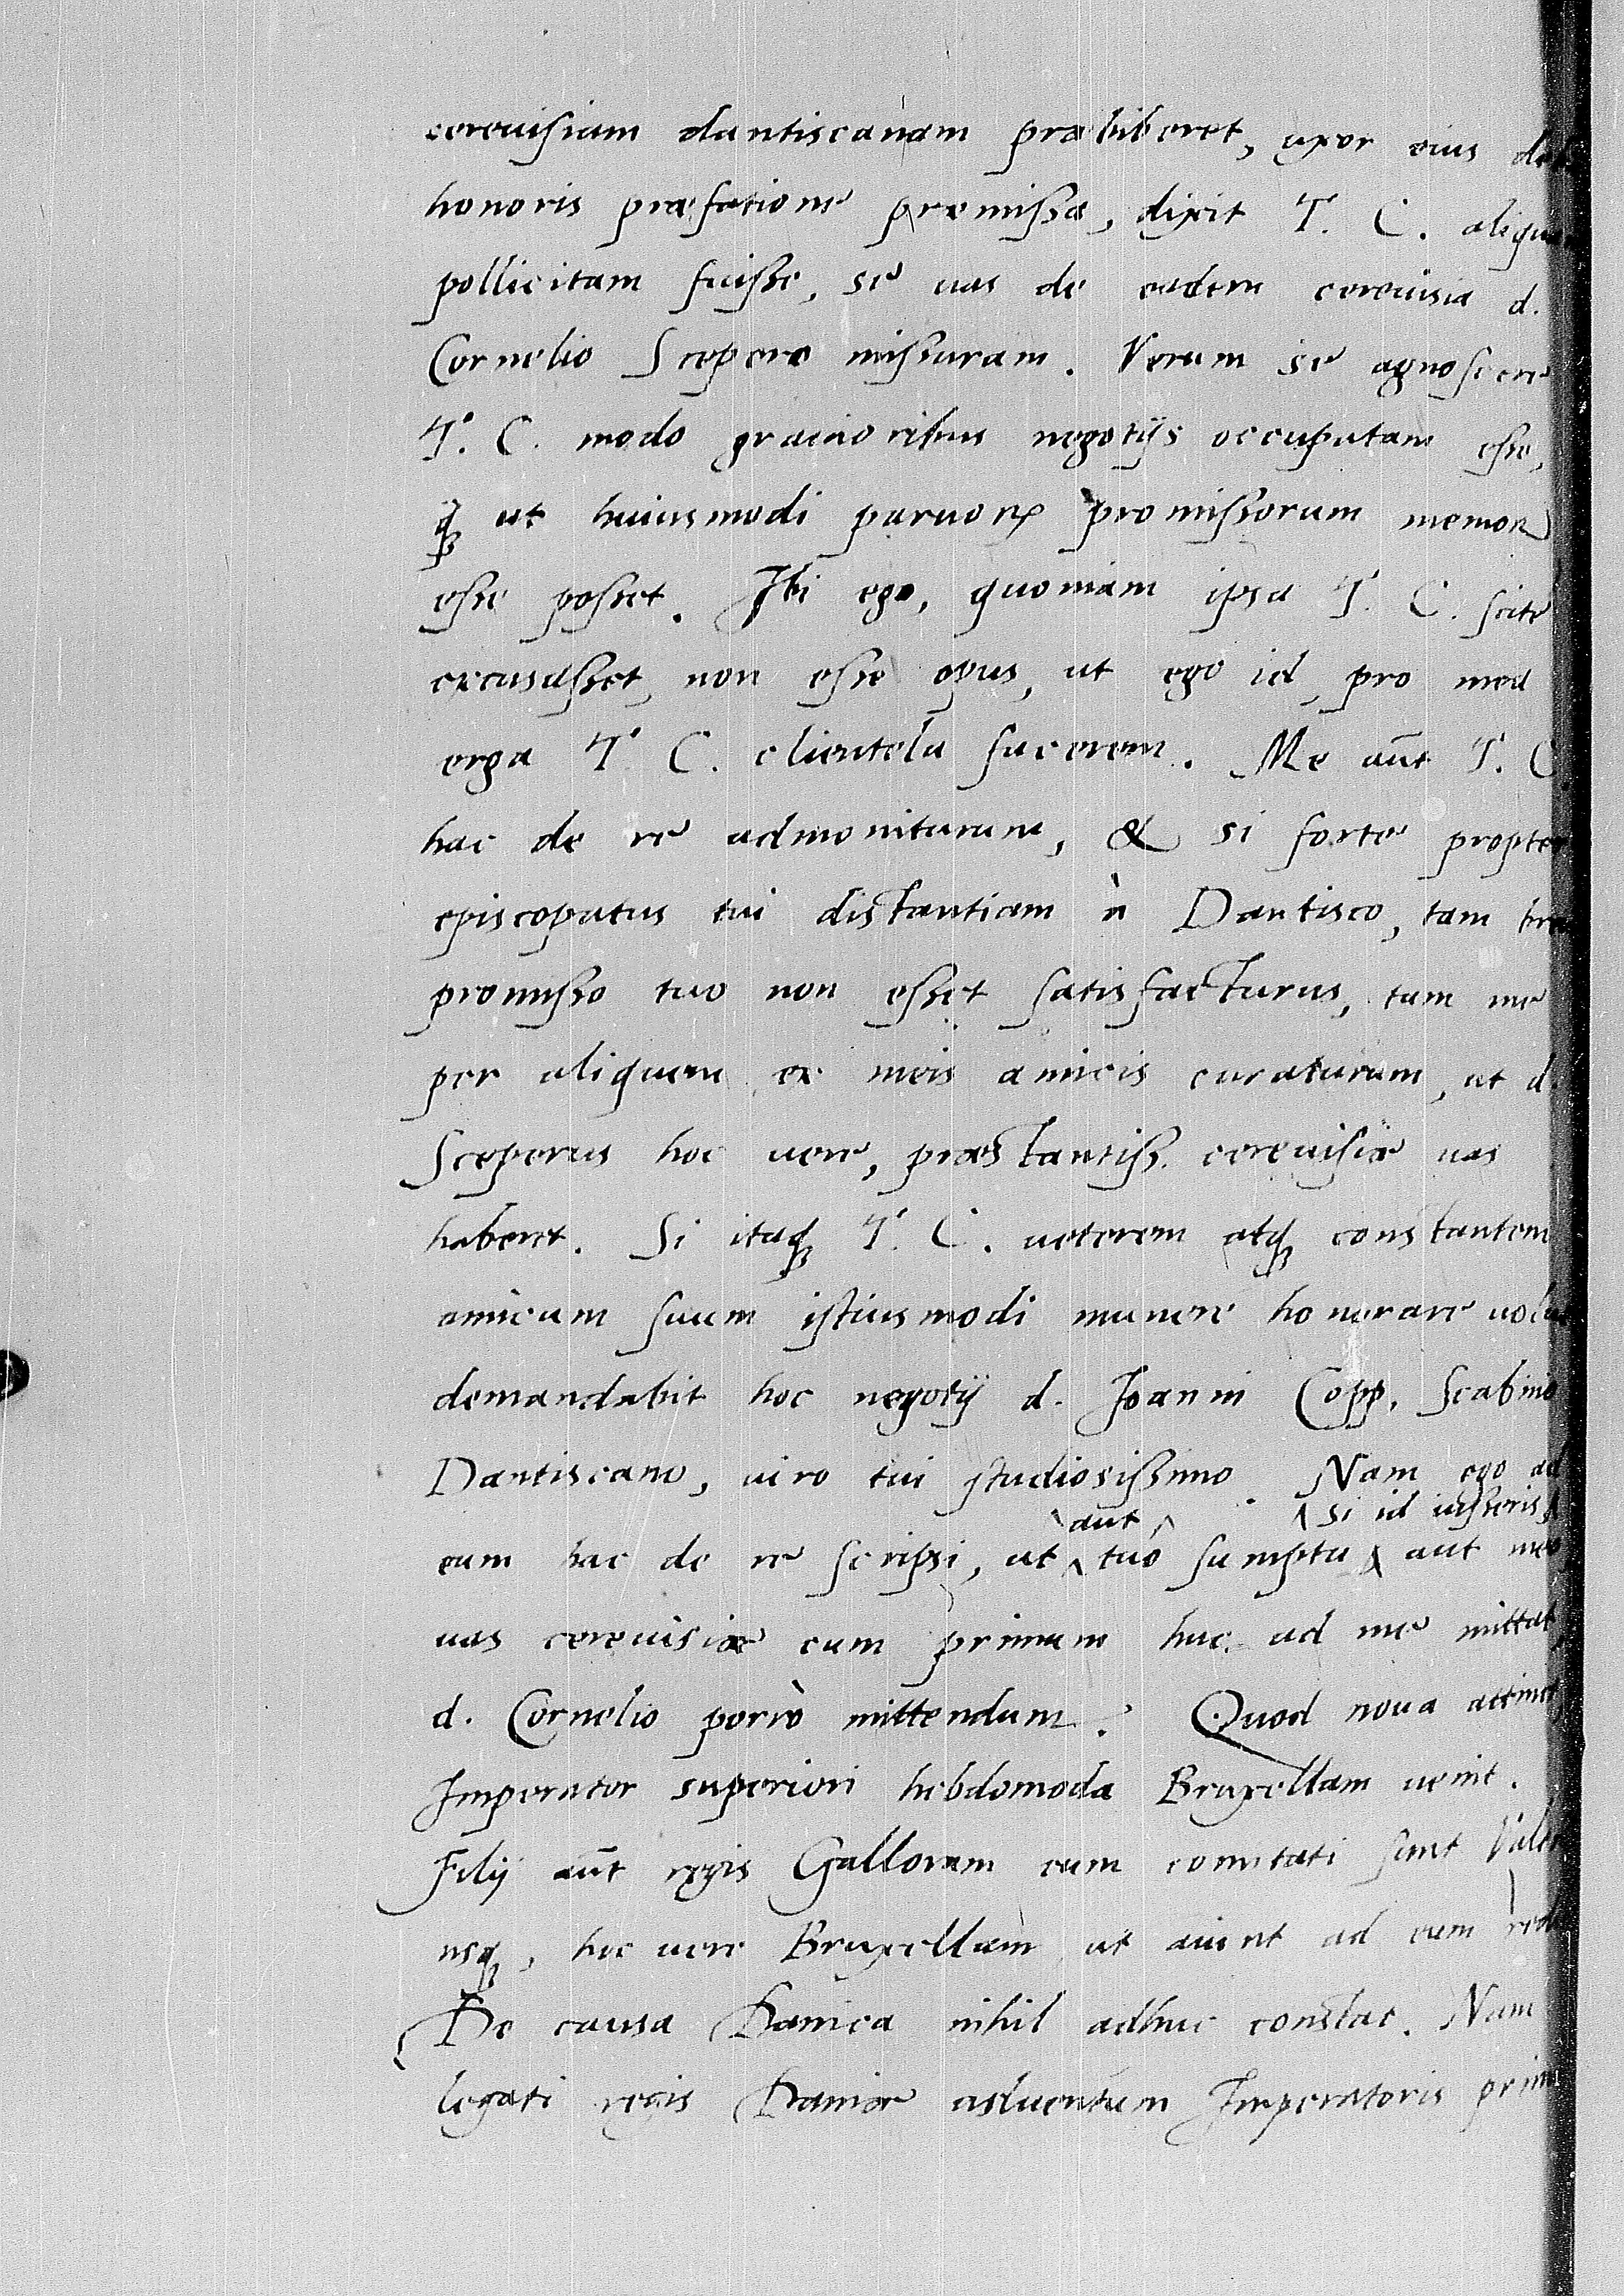 cereuisiam dantiscanam præhiberet, uxor eius
honoris præfatione premissa, dixit T. C.
pollicitam fuisse, se uas de eadem cereuisia d.
Cornelio Scepero missuram. Verum se agnoscere
T. C. modo grauioribus negotijs occupatam esse,
ꝗ ut huiusmodi paruoꝝ promissorum memor
esse posset. Ibi ego, quoniam ipsa T. C. scite
excusasset, non esse opus, ut ego id pro mea
erga T. C. clientela facerem. Me aūt T. C.
hac de re admoniturum, & si forte propter
episcopatus tui distantiam à Dantisco, tam
promisso tuo non esset satisfacturus, tum me
per aliquem ex meis amicis curaturum, ut d.
Sceperus hoc uere, præstantiss. cereuisiæ uas
haberet. Si itaqꝫ T. C. ueterem atqꝫ constantem
amicum suum istiusmodi munere honorare
demandabit hoc negotij d. Ioanni Copp. Scabino
Dantiscano, uiro tui studiosissimo. Nam ego ad
aut si id iusseris,
eum hac de re scripsi, ut tuo sumptu aut meo
uas cereuisiæ cum primum huc ad me mittat,
d. Cornelio porrò mittendum. Quod noua attinet
Imperator superiori hebdomoda Bruxellam uenit.
Filij aūt regis Gallorum eum comitati sunt
usqꝫ, hoc uere Bruxellam ut aiunt ad eum
De causa Danica nihil adhuc constat. Nam
legati regis Daniæ aduentum Imperatoris